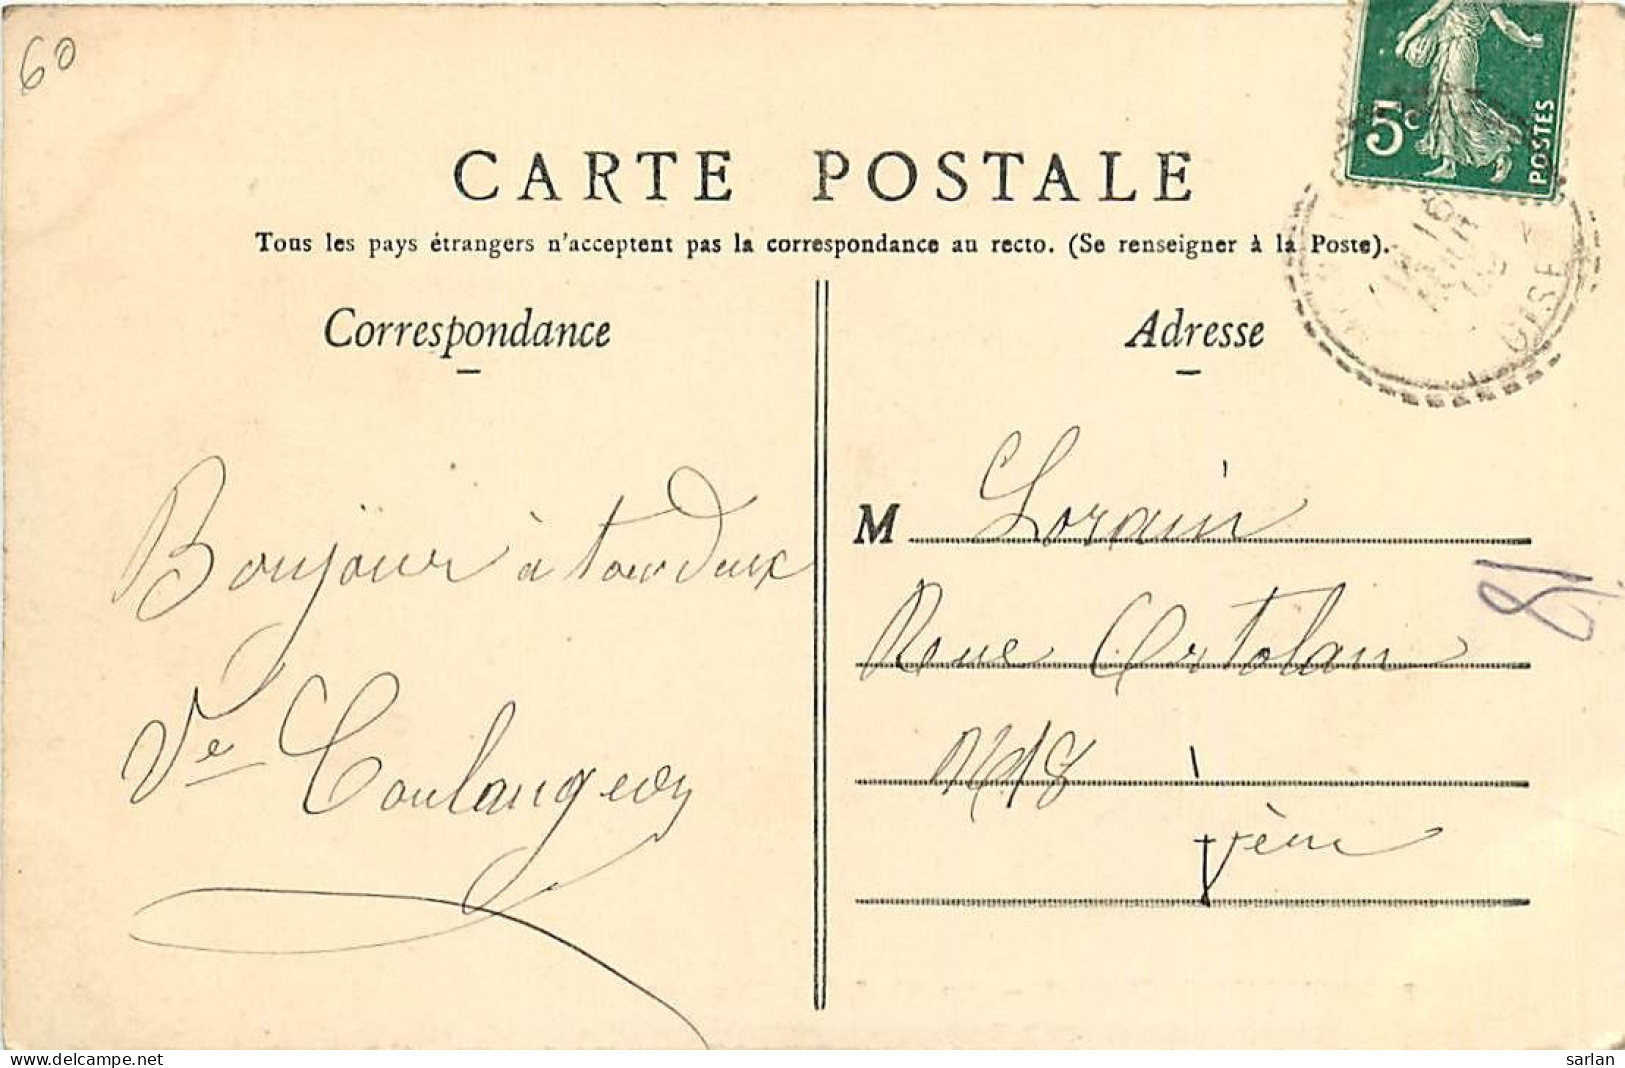 60
5c
POSTES
CARTE POSTALE
Tous les pays étrangers n'acceptent pas la correspondance au recto. (Se renseigner à la Poste).
16
OISE
Correspondance
Adresse
Bonjour à tous deux
Ve Coulangeon
M Lorain
Rue Ortolan
N 18
Vème
18
www.delcampe.net
sarlan